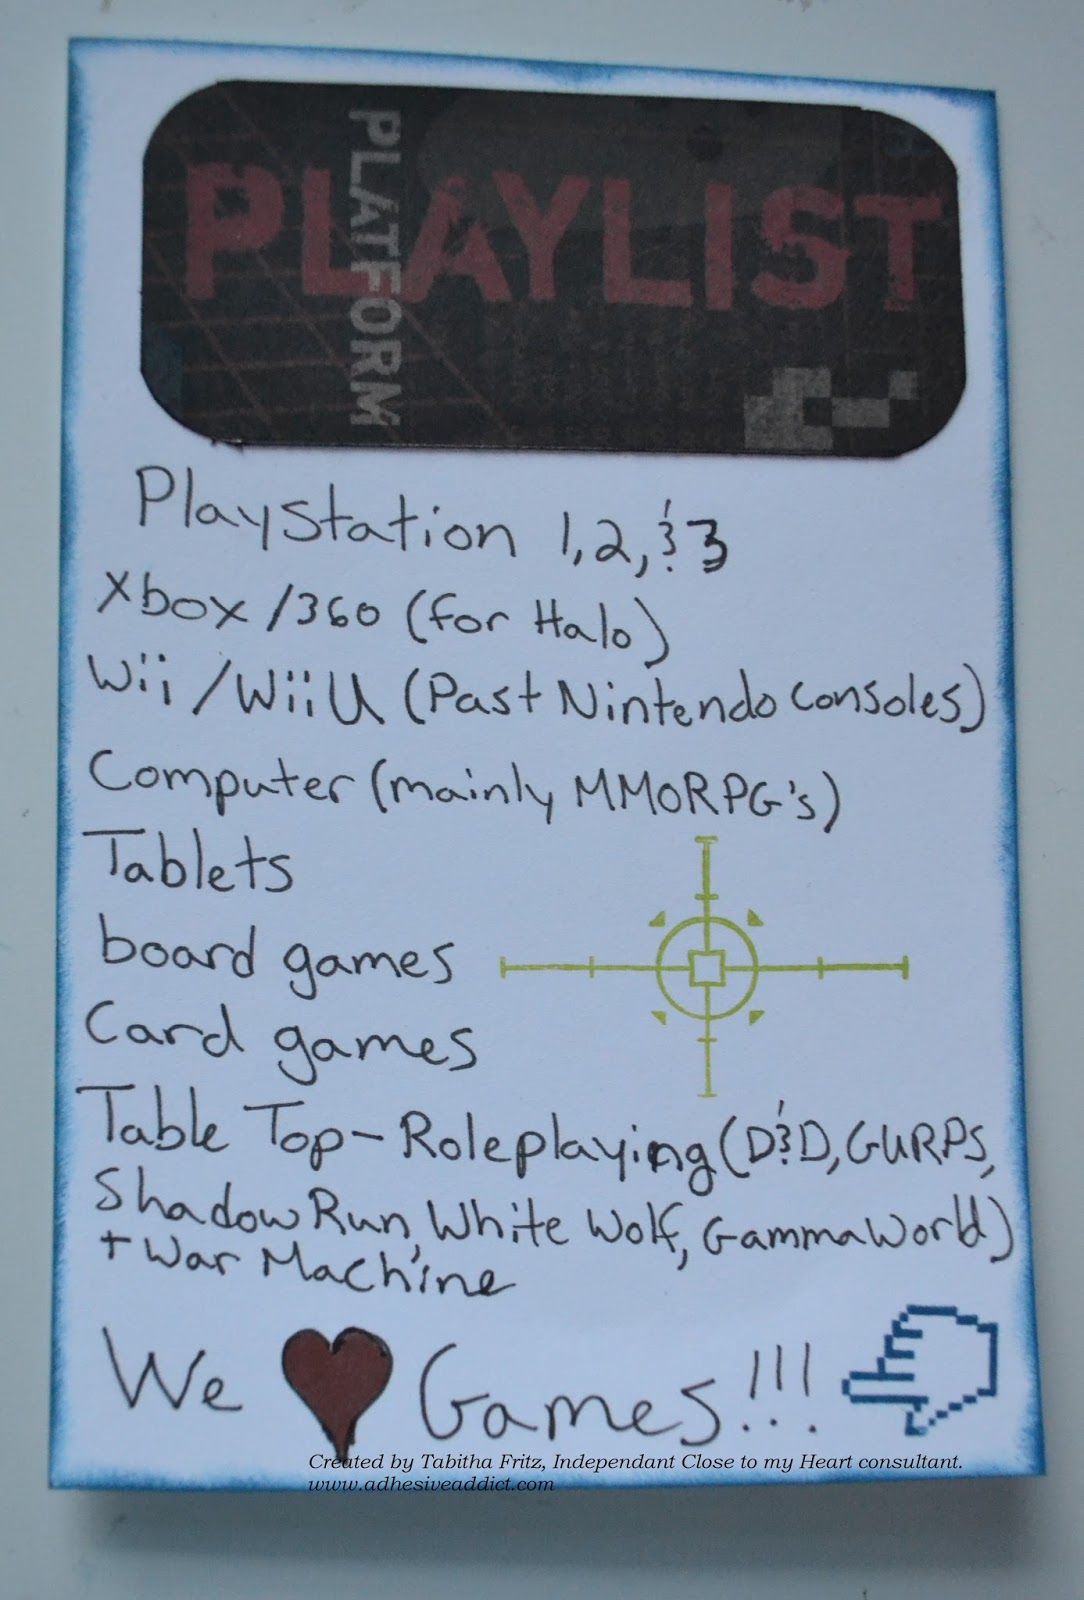 PLAYLIST
PLATFORM
Playstation 1,2, & 3
Xbox /360 (for Halo)
Wii /Wii U (Past Nintendo consoles)
Computer (mainly MMORPG's)
Tablets
board games
Card games
Table Top-Roleplaying (D&D, GURPS,
Shadow Run, White Wolf, Gamma World)
+ War Machine
We ♥ Games!!!
Created by Tabitha Fritz, Independant Close to my Heart consultant.
www.adhesiveaddict.com